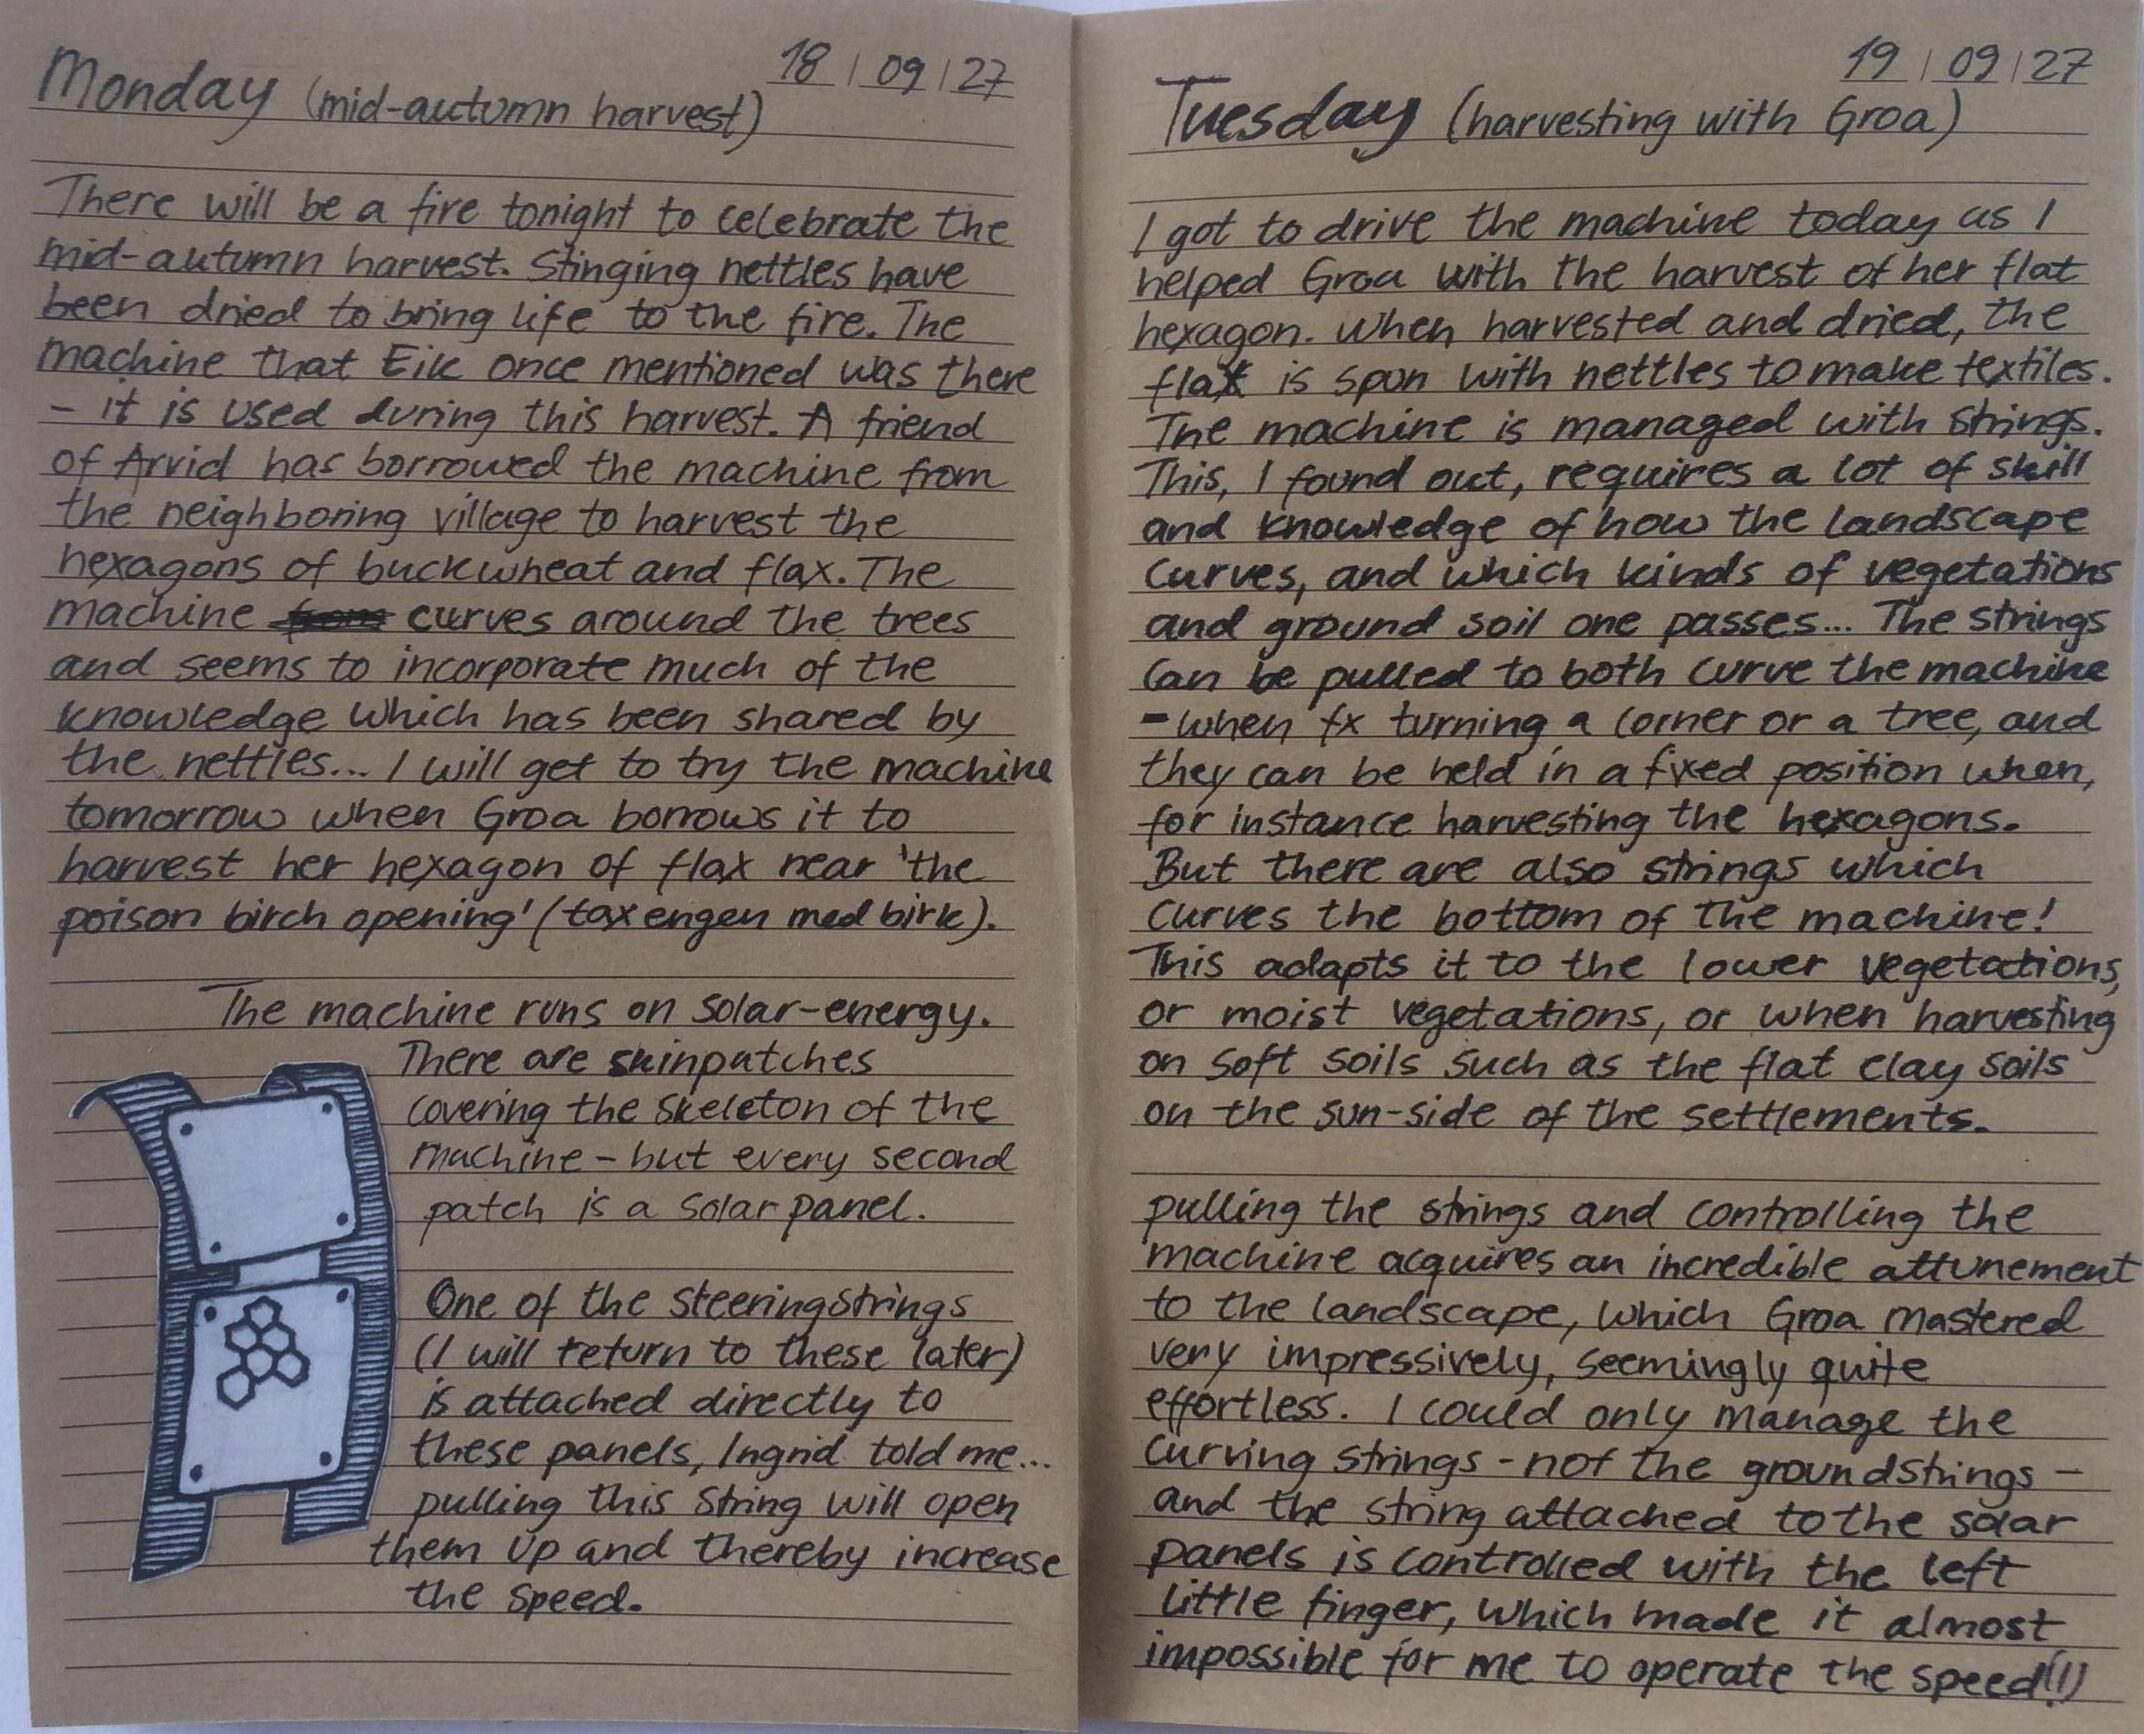 Monday (mid-autumn harvest) 18 | 09 | 27
There will be a fire tonight to celebrate the
mid-autumn harvest. Stinging nettles have
been dried to bring life to the fire. The
machine that Eik once mentioned was there
- it is used during this harvest. A friend
of Arvid has borrowed the machine from
the neighboring village to harvest the
hexagons of buckwheat and flax. The
machine from curves around the trees
and seems to incorporate much of the
knowledge which has been shared by
the nettles... I will get to try the machine
tomorrow when Groa borrows it to
harvest her hexagon of flax near 'the
poison birch opening' (taxengen med birk).
The machine runs on solar-energy.
There are skinpatches
covering the skeleton of the
machine - but every second
patch is a solar panel.
One of the steeringstrings
(I will return to these later)
is attached directly to
these panels, Ingrid told me...
pulling this string will open
them up and thereby increase
the speed.
Tuesday (harvesting with Groa) 19 | 09 | 27
I got to drive the machine today as I
helped Groa with the harvest of her flat
hexagon. When harvested and dried, the
flax is spun with nettles to make textiles.
The machine is managed with strings.
This, I found out, requires a lot of skill
and knowledge of how the landscape
curves, and which kinds of vegetations
and ground soil one passes... The strings
can be pulled to both curve the machine
- when fx turning a corner or a tree, and
they can be held in a fixed position when,
for instance harvesting the hexagons.
But there are also strings which
curves the bottom of the machine!
This adapts it to the lower vegetations,
or moist vegetations, or when harvesting
on soft soils such as the flat clay soils
on the sun-side of the settlements.
pulling the strings and controlling the
machine acquires an incredible attunement
to the landscape, which Groa mastered
very impressively, seemingly quite
effortless. I could only manage the
curving strings - not the groundstrings -
and the string attached to the solar
panels is controlled with the left
little finger, which made it almost
impossible for me to operate the speed(!)